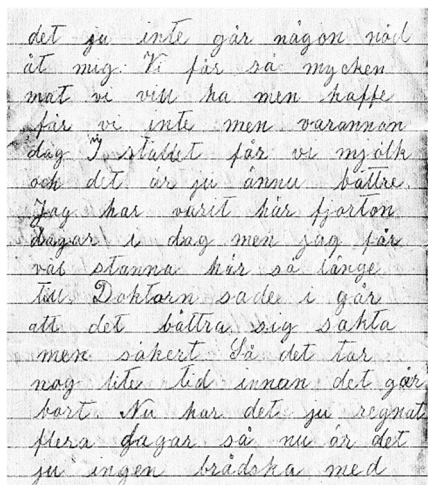 det ju inte går någon nöd
åt mig. Vi får så mycken
mat vi vill ha men kaffe
får vi inte men varannan
dag. I stället får vi mjölk
och det är ju ännu bättre.
Jag har varit här fjorton
dagar i dag men jag får
väl stanna här så länge
till. Doktorn sade i går
att det bättra sig sakta
men säkert. Så det tar
nog lite tid innan det går
bort. Nu har det ju regnat
flera dagar så nu är det
ju ingen brådska med